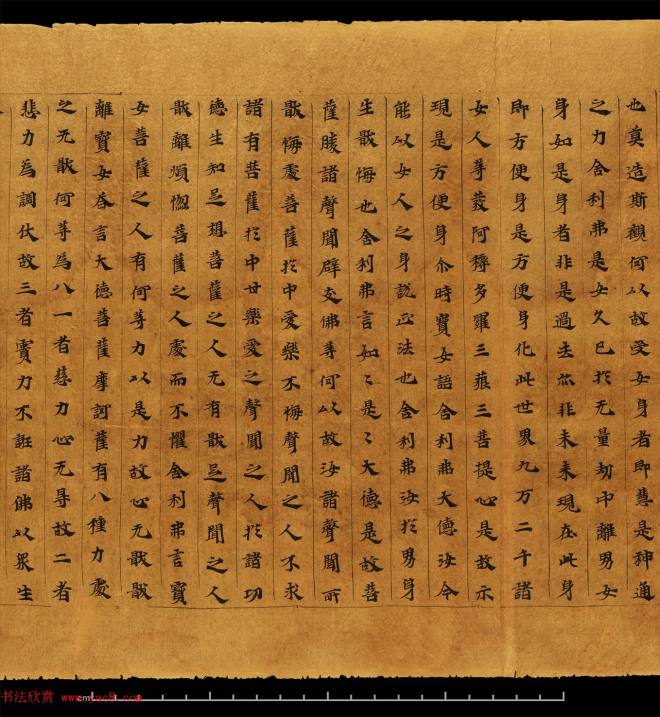 也莫造斯觀何以故受女身者即慧是神通
之力舍利弗是女久已於无量劫中離男女
身如是身者非是過去亦非未來現在此身
即方便身是方便身化此世界九万二千諸
女人等發阿耨多羅三藐三菩提心是故示
現是方便身尒時寶女語舍利弗大德汝今
能以女人之身説正法也舍利弗汝於男身
生猒悔也舍利弗言如〻是〻大德是故菩
薩勝諸聲聞辟支佛等何以故汝諸聲聞所
猒悔處菩薩於中愛樂不悔聲聞之人不求
諸有菩薩於中甘樂愛之聲聞之人於諸功
德生知足想菩薩之人无有猒足聲聞之人
猒離煩惱菩薩之人處而不懼舍利弗言寶
女菩薩之人有何等力以是力故心无猒猒
離寶女荅言大德菩薩摩訶薩有八種力處
之无猒何等為八一者慈力心无㝵故二者
悲力為調伏故三者實力不誑諸佛以衆生
书法欣赏 www.yac8.com
cm